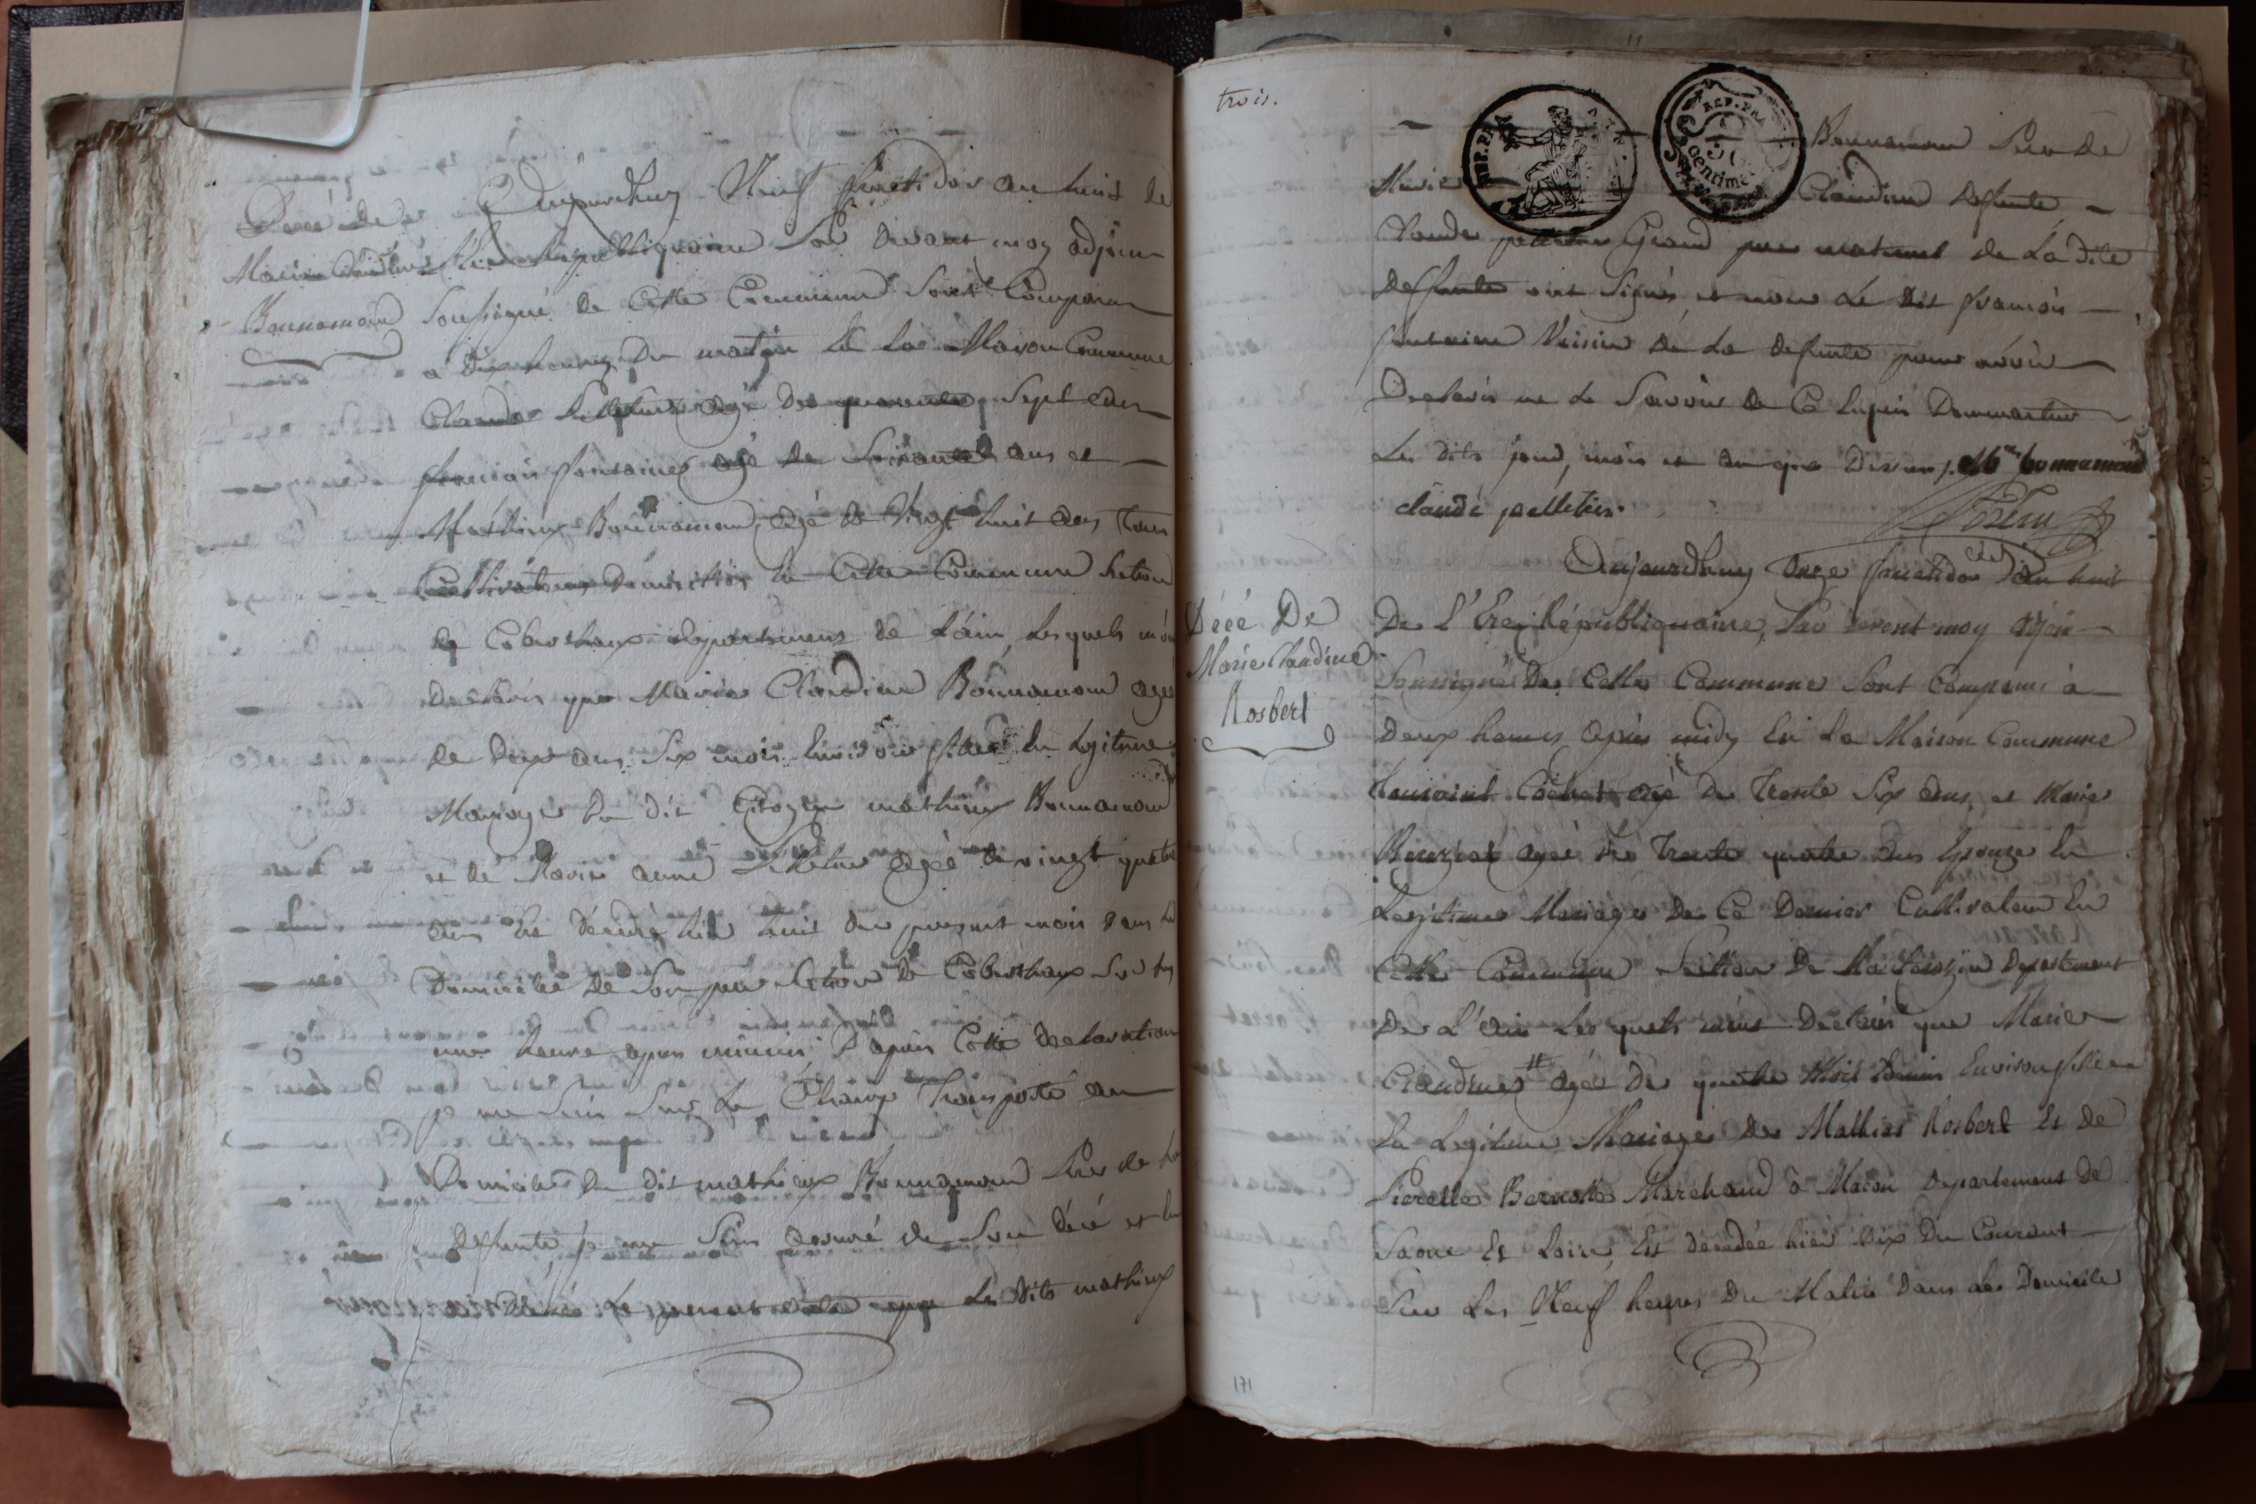 Décé de
Marie Claudine
Bonnamour
Aujourdhuy Neuf fructidor an huit de
L'Ere Republiquaine Par devant moy adjoin
soussigné de Cette Commune sont Comparu
a dix heures du matin En La Maison Commune
Claude Pelletier agé de quarente Sept ans
francois fontaine agé de Soixante ans et
Mathieu Bonnamour agé de Vingt huit ans Tous
Cultivateurs Domicilies En Cette Commune Section
de Coberthoux departement de L'ain, Lesquels m'ón
Declarés que Marie Claudine Bonnamour agee
de Deux ans Six mois Environ fille En Legitime
Mariage du dit Citoyen mathieux Bonnamour
et de Marie anne Pelletier agée de vingt quatre
ans Est décédé hié huit du present mois dans Le
Domicile de Son pere Section de Coberthoux Sur les
une heure apres minuis D'apres Cette declaration
je me Suis Sur Le Champ Transporté au
Domicile du dit mathieux Bonnamour Pres de La
defunte, je me Suis assuré de Son décé et En
ai dressé Le present acte que Les dits mathieux
trois.
REP. FRA
REP. FRA
centime
Bonnamour Pere de
Marie Claudine Defunte
Claude pelletier Grand pere maternel de La dite
deffunte ont Signés et non Le dit francois
fontaine Voisin de La defunte pour avoir
Declarés ne Le Savoir de Ce Enquis Dommartin
Les dits jour, mois et an que dessus. bonnamour
claude pelletier.
Décé De
Marie Claudine
Rosbert
Aujourdhuy Onze fructidor de L'an huit
De L'Ere Républiquaine, Par devent moy adjoin
Soussigné De Cette Commune Sont Comparus à
Deux heures Après midy En La Maison Commune
Toussaint Cochet agé de Trente Six ans, et Marie
agée De Trente quatre ans Epouze En
Legitime Mariage De Ce Dernier Cultivateur En
Cette Commune Section De Departement
De L'ain Lesquels m'ont Declarés que Marie
Claudine # agée De quatre Mois Environ fille
En Legitime Mariage De Mathias Rosbert Et de
Pierrette Marchand à Macon Departement De
Saone Et Loire, Est décédée hier dix Du Courant
Sur Les Neuf heures Du Matin Dans Le Domicile
171